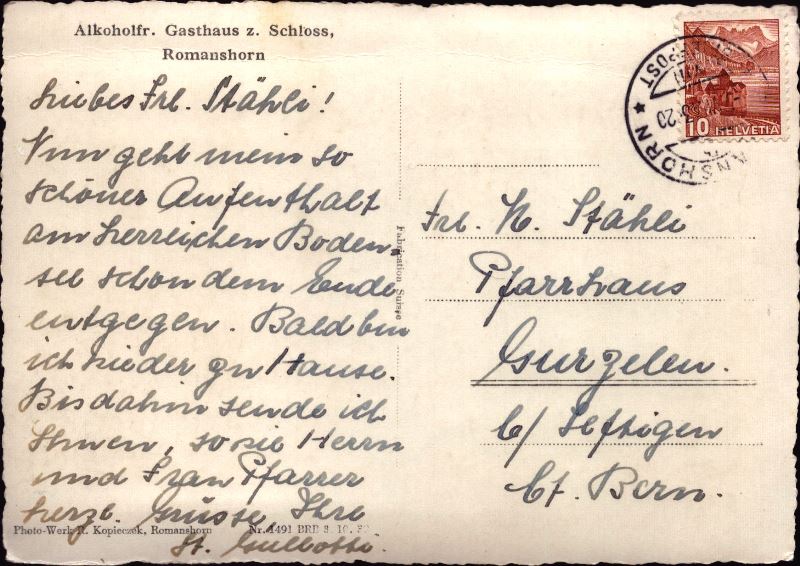 Alkoholfr. Gasthaus z. Schloss,
Romanshorn
Liebes Frl. Stähli!
Nun geht mein so
schöner Aufenthalt
am herrlichen Boden-
see schon dem Ende
entgegen. Bald bin
ich wieder zu Hause.
Bis dahin sende ich
Ihnen, sowie Herrn
und Frau Pfarrer
herzl. Grüsse, Ihre
St.
Photo-Werk R. Kopieczek, Romanshorn Nr. 1491 BRB 3. 10. 39
Fabrication Suisse
10 HELVETIA
ANSHORN
POST
20
Frl. N. Stähli
Pfarrhaus
Gurzelen.
b/ Seftigen
Ct. Bern.